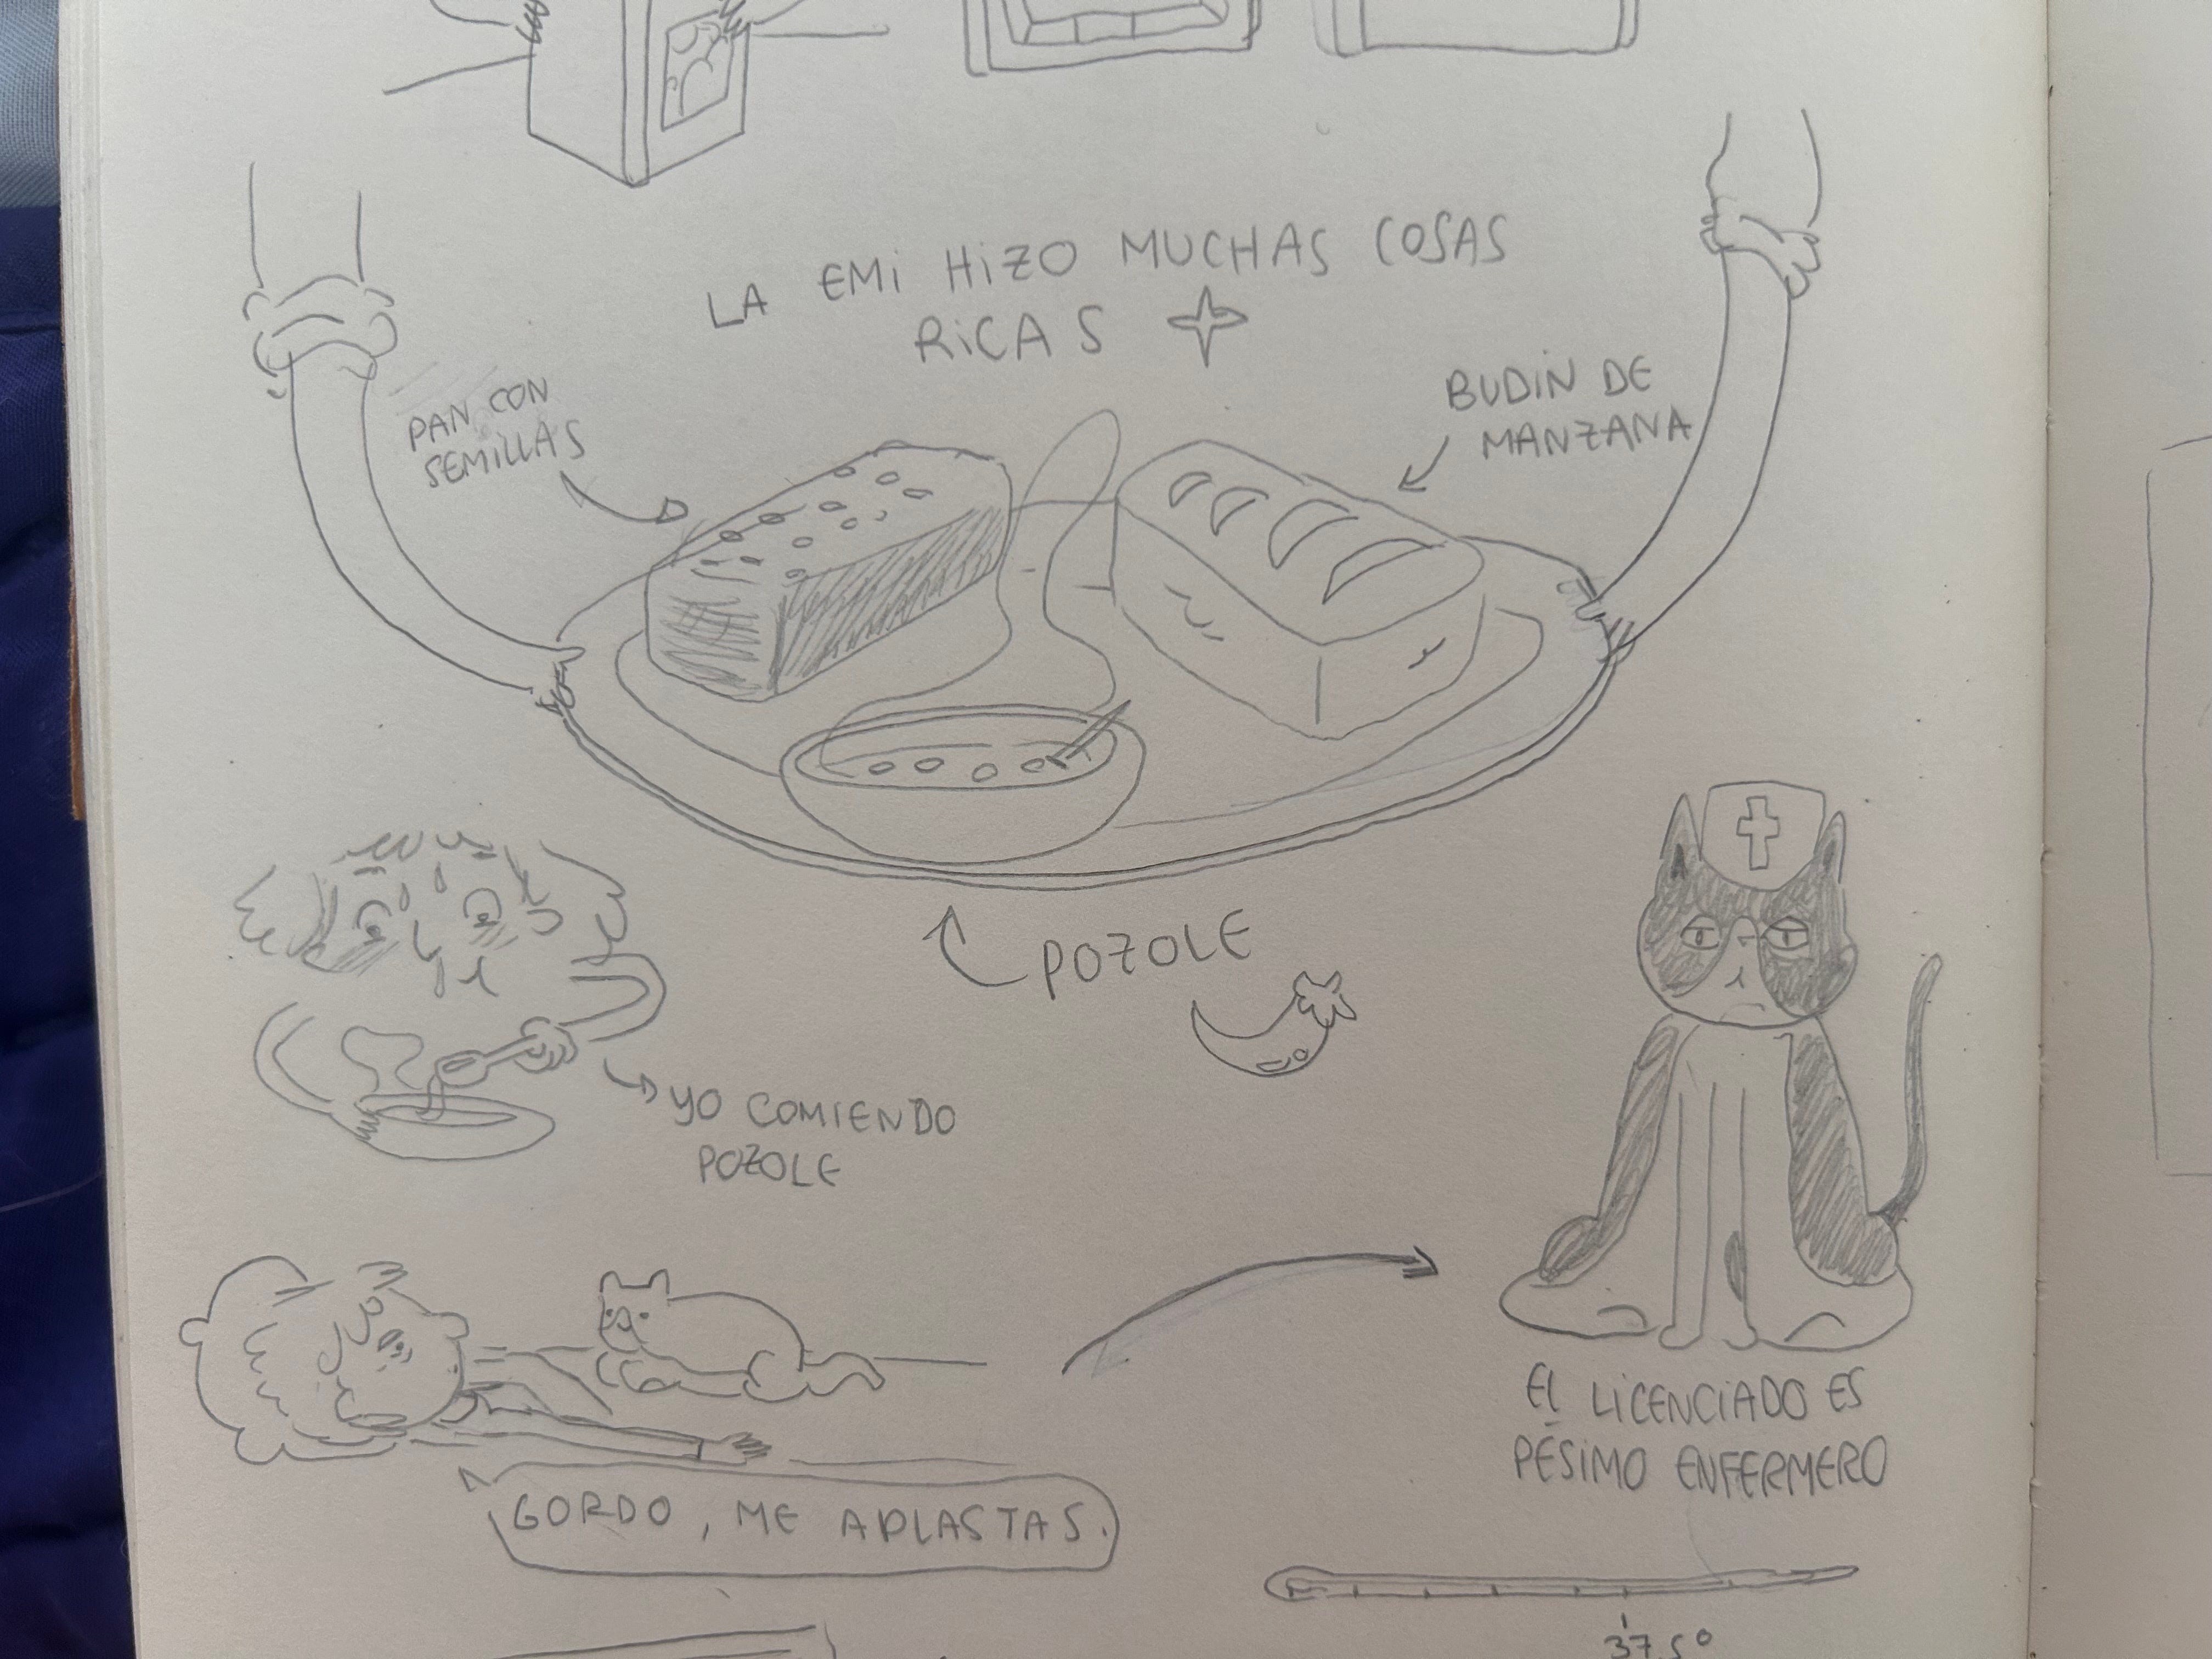 LA EMI HIZO MUCHAS COSAS
RICAS
PAN CON
SEMILLAS
BUDIN DE
MANZANA
POZOLE
YO COMIENDO
POZOLE
EL LICENCIADO ES
PÉSIMO ENFERMERO
GORDO, ME APLASTAS.
37,5°